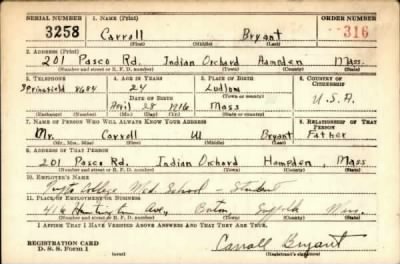 SERIAL NUMBER 1. NAME (Print) ORDER NUMBER
3258 Carroll Bryant 316
(First) (Middle) (Last)
2. ADDRESS (Print)
201 Pasco Rd. Indian Orchard Hampden Mass.
(Number and street or R. F. D. number) (Town) (County) (State)
3. TELEPHONE 4. AGE IN YEARS 5. PLACE OF BIRTH 6. COUNTRY OF CITIZENSHIP
Springfield 24 Ludlow
DATE OF BIRTH (Town or county)
April 28 1916 Mass U.S.A.
(Exchange) (Number) (Mo.) (Day) (Yr.) (State or country)
7. NAME OF PERSON WHO WILL ALWAYS KNOW YOUR ADDRESS 8. RELATIONSHIP OF THAT PERSON
Mr. Carroll W Bryant Father
(Mr., Mrs., Miss) (First) (Middle) (Last)
9. ADDRESS OF THAT PERSON
201 Pasco Rd. Indian Orchard Hampden, Mass.
(Number and street or R. F. D. number) (Town) (County) (State)
10. EMPLOYER'S NAME
Tufts College Med School - Student
11. PLACE OF EMPLOYMENT OR BUSINESS
416 Huntington Ave, Boston Suffolk Mass.
(Number and street or R. F. D. number) (Town) (County) (State)
I AFFIRM THAT I HAVE VERIFIED ABOVE ANSWERS AND THAT THEY ARE TRUE.
REGISTRATION CARD
D. S. S. Form 1 (over) Carroll Bryant
(Registrant's signature)